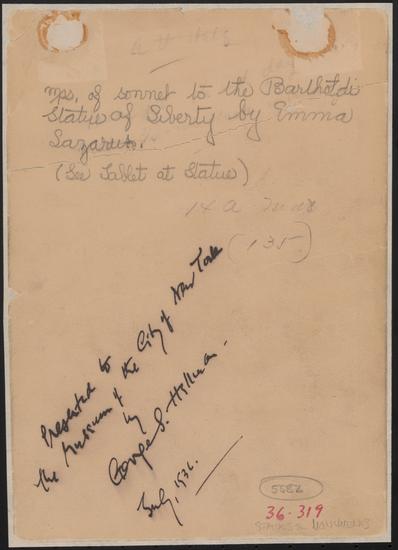 mss. of sonnet to the Bartholdi
Statue of Liberty by Emma
Lazarus.
(See Tablet at Statue)
14 A
(135)
Presented to
the Museum of the City of New York
by
George S. Hellman.
July, 1936.
5682
36-319